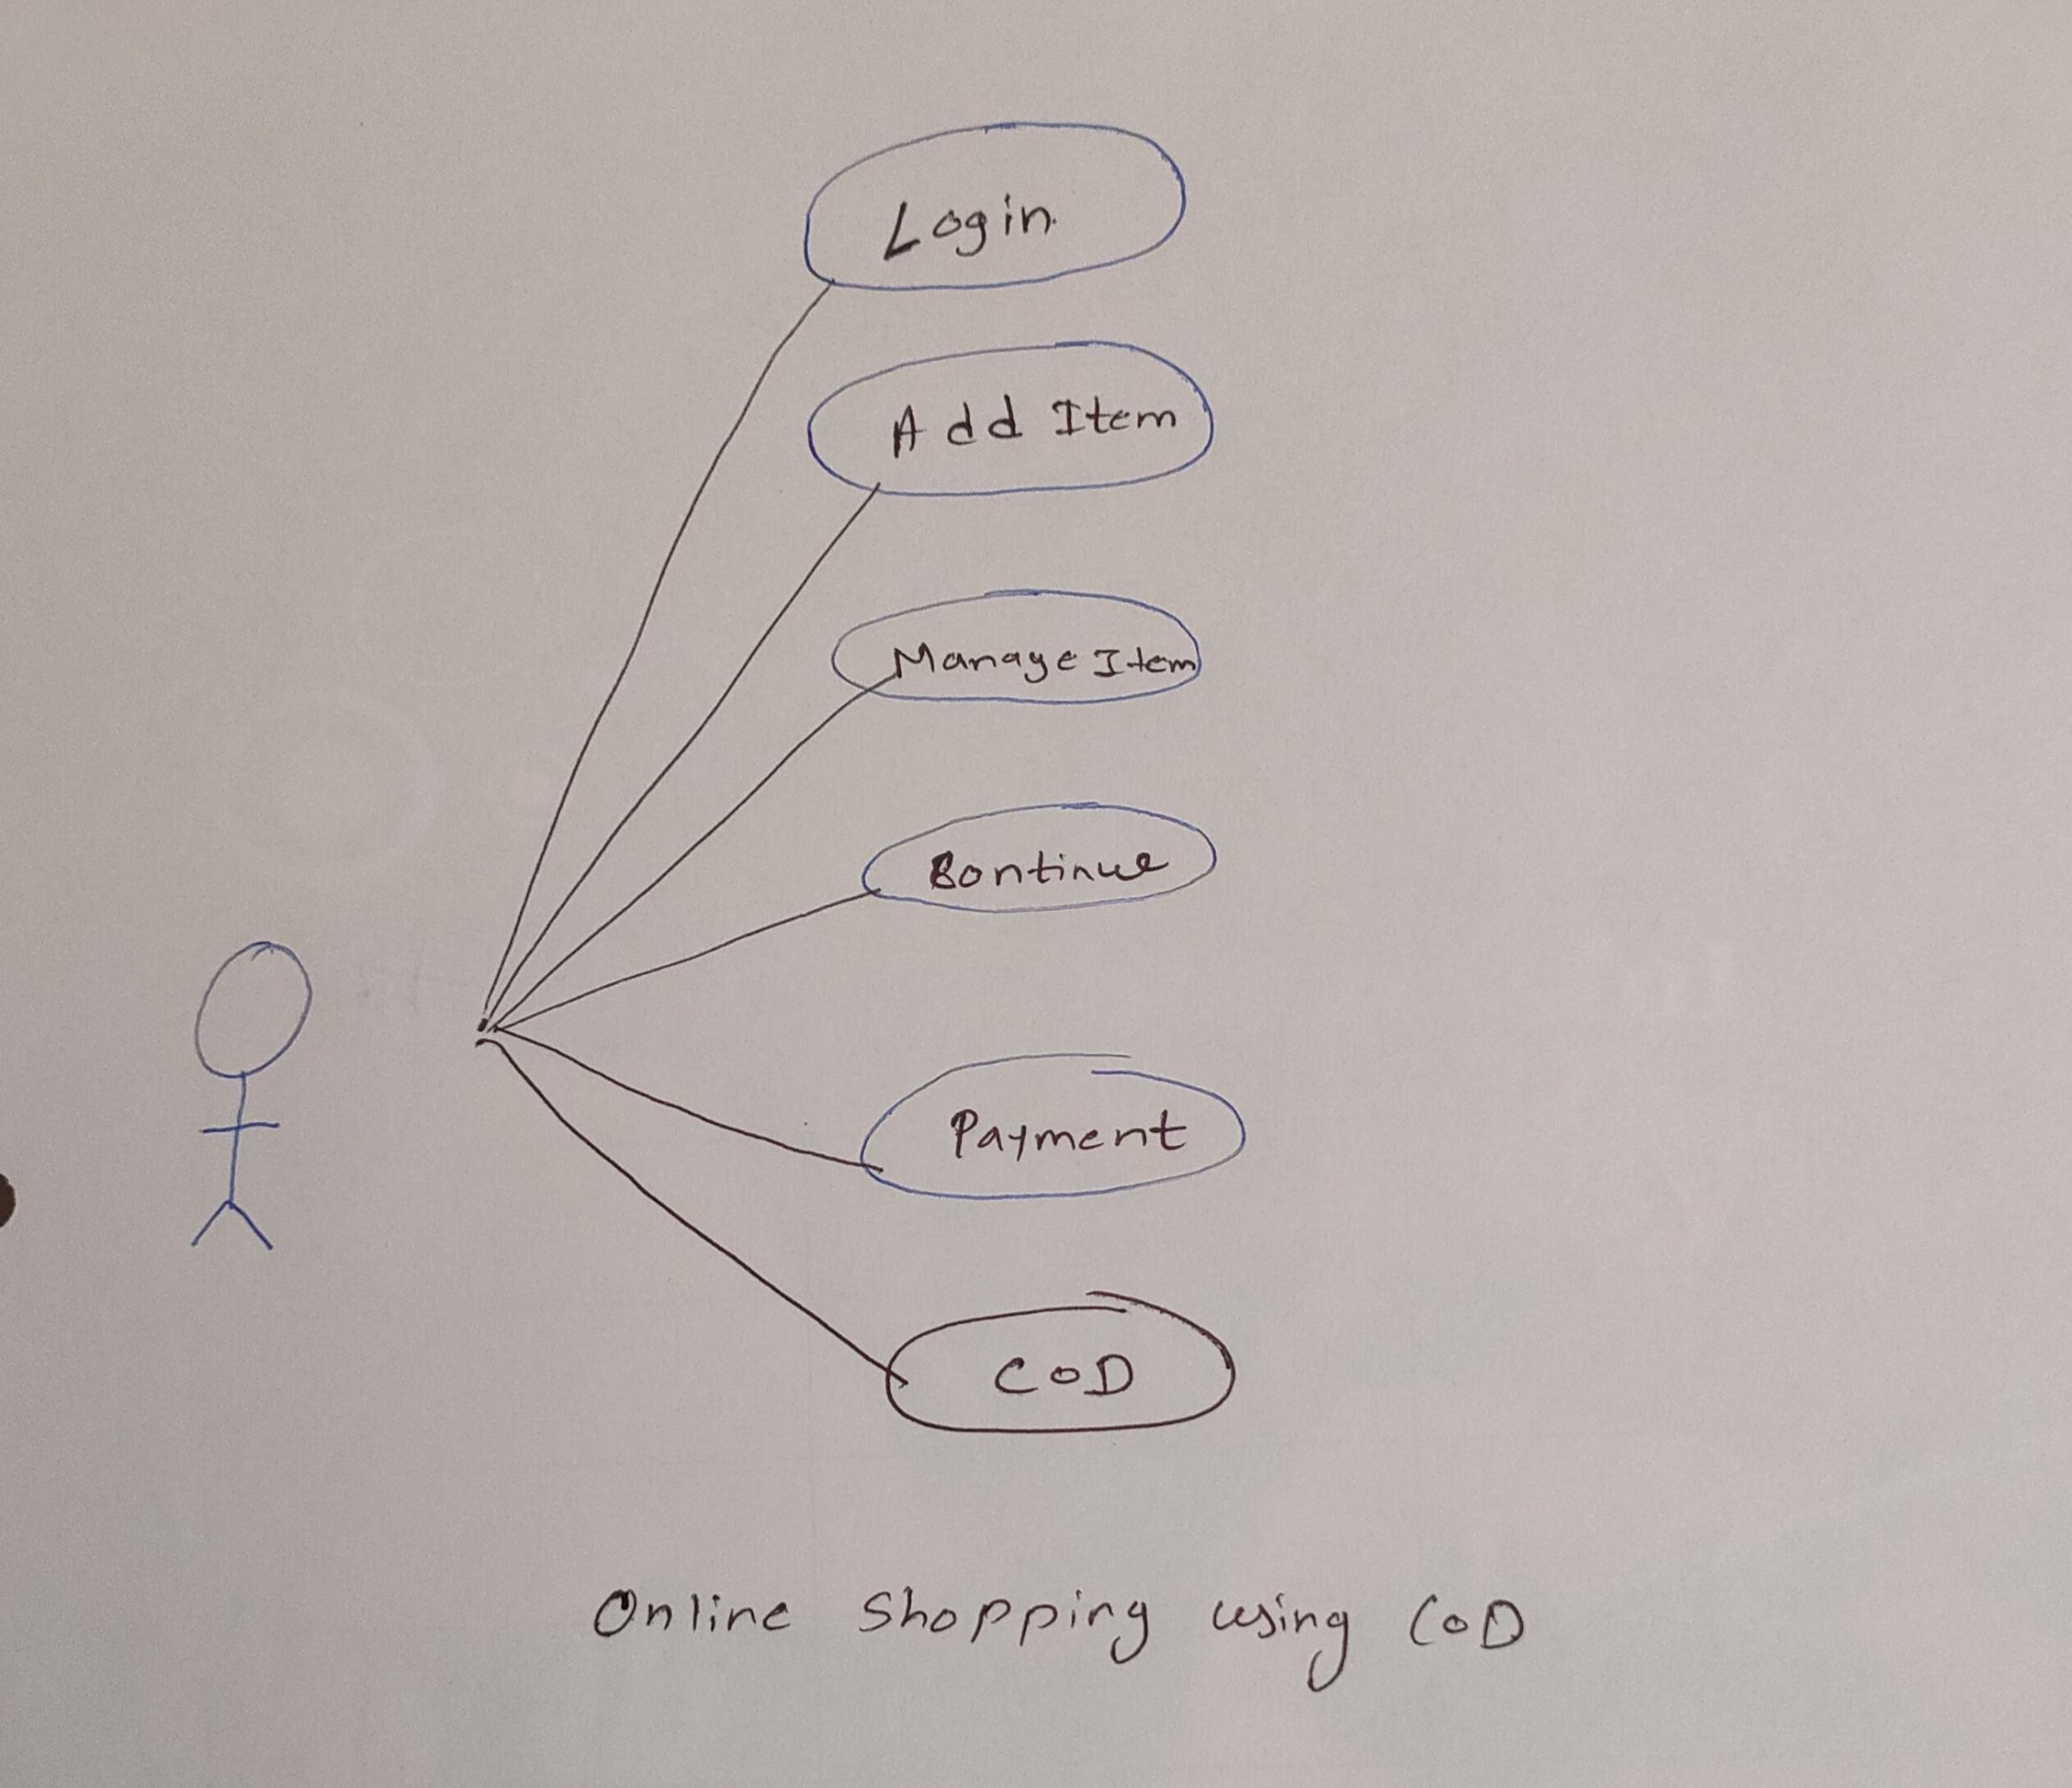 Login
Add Item
Manage Item
Continue
Payment
COD
Online shopping using COD